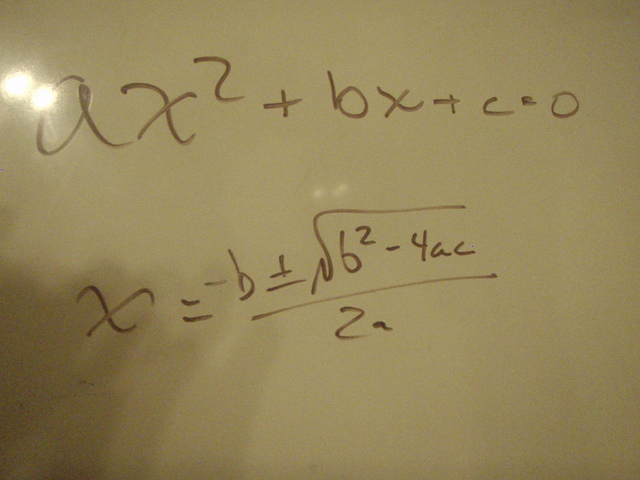 ax² + bx + c = 0
x = -b ± √b² - 4ac / 2a